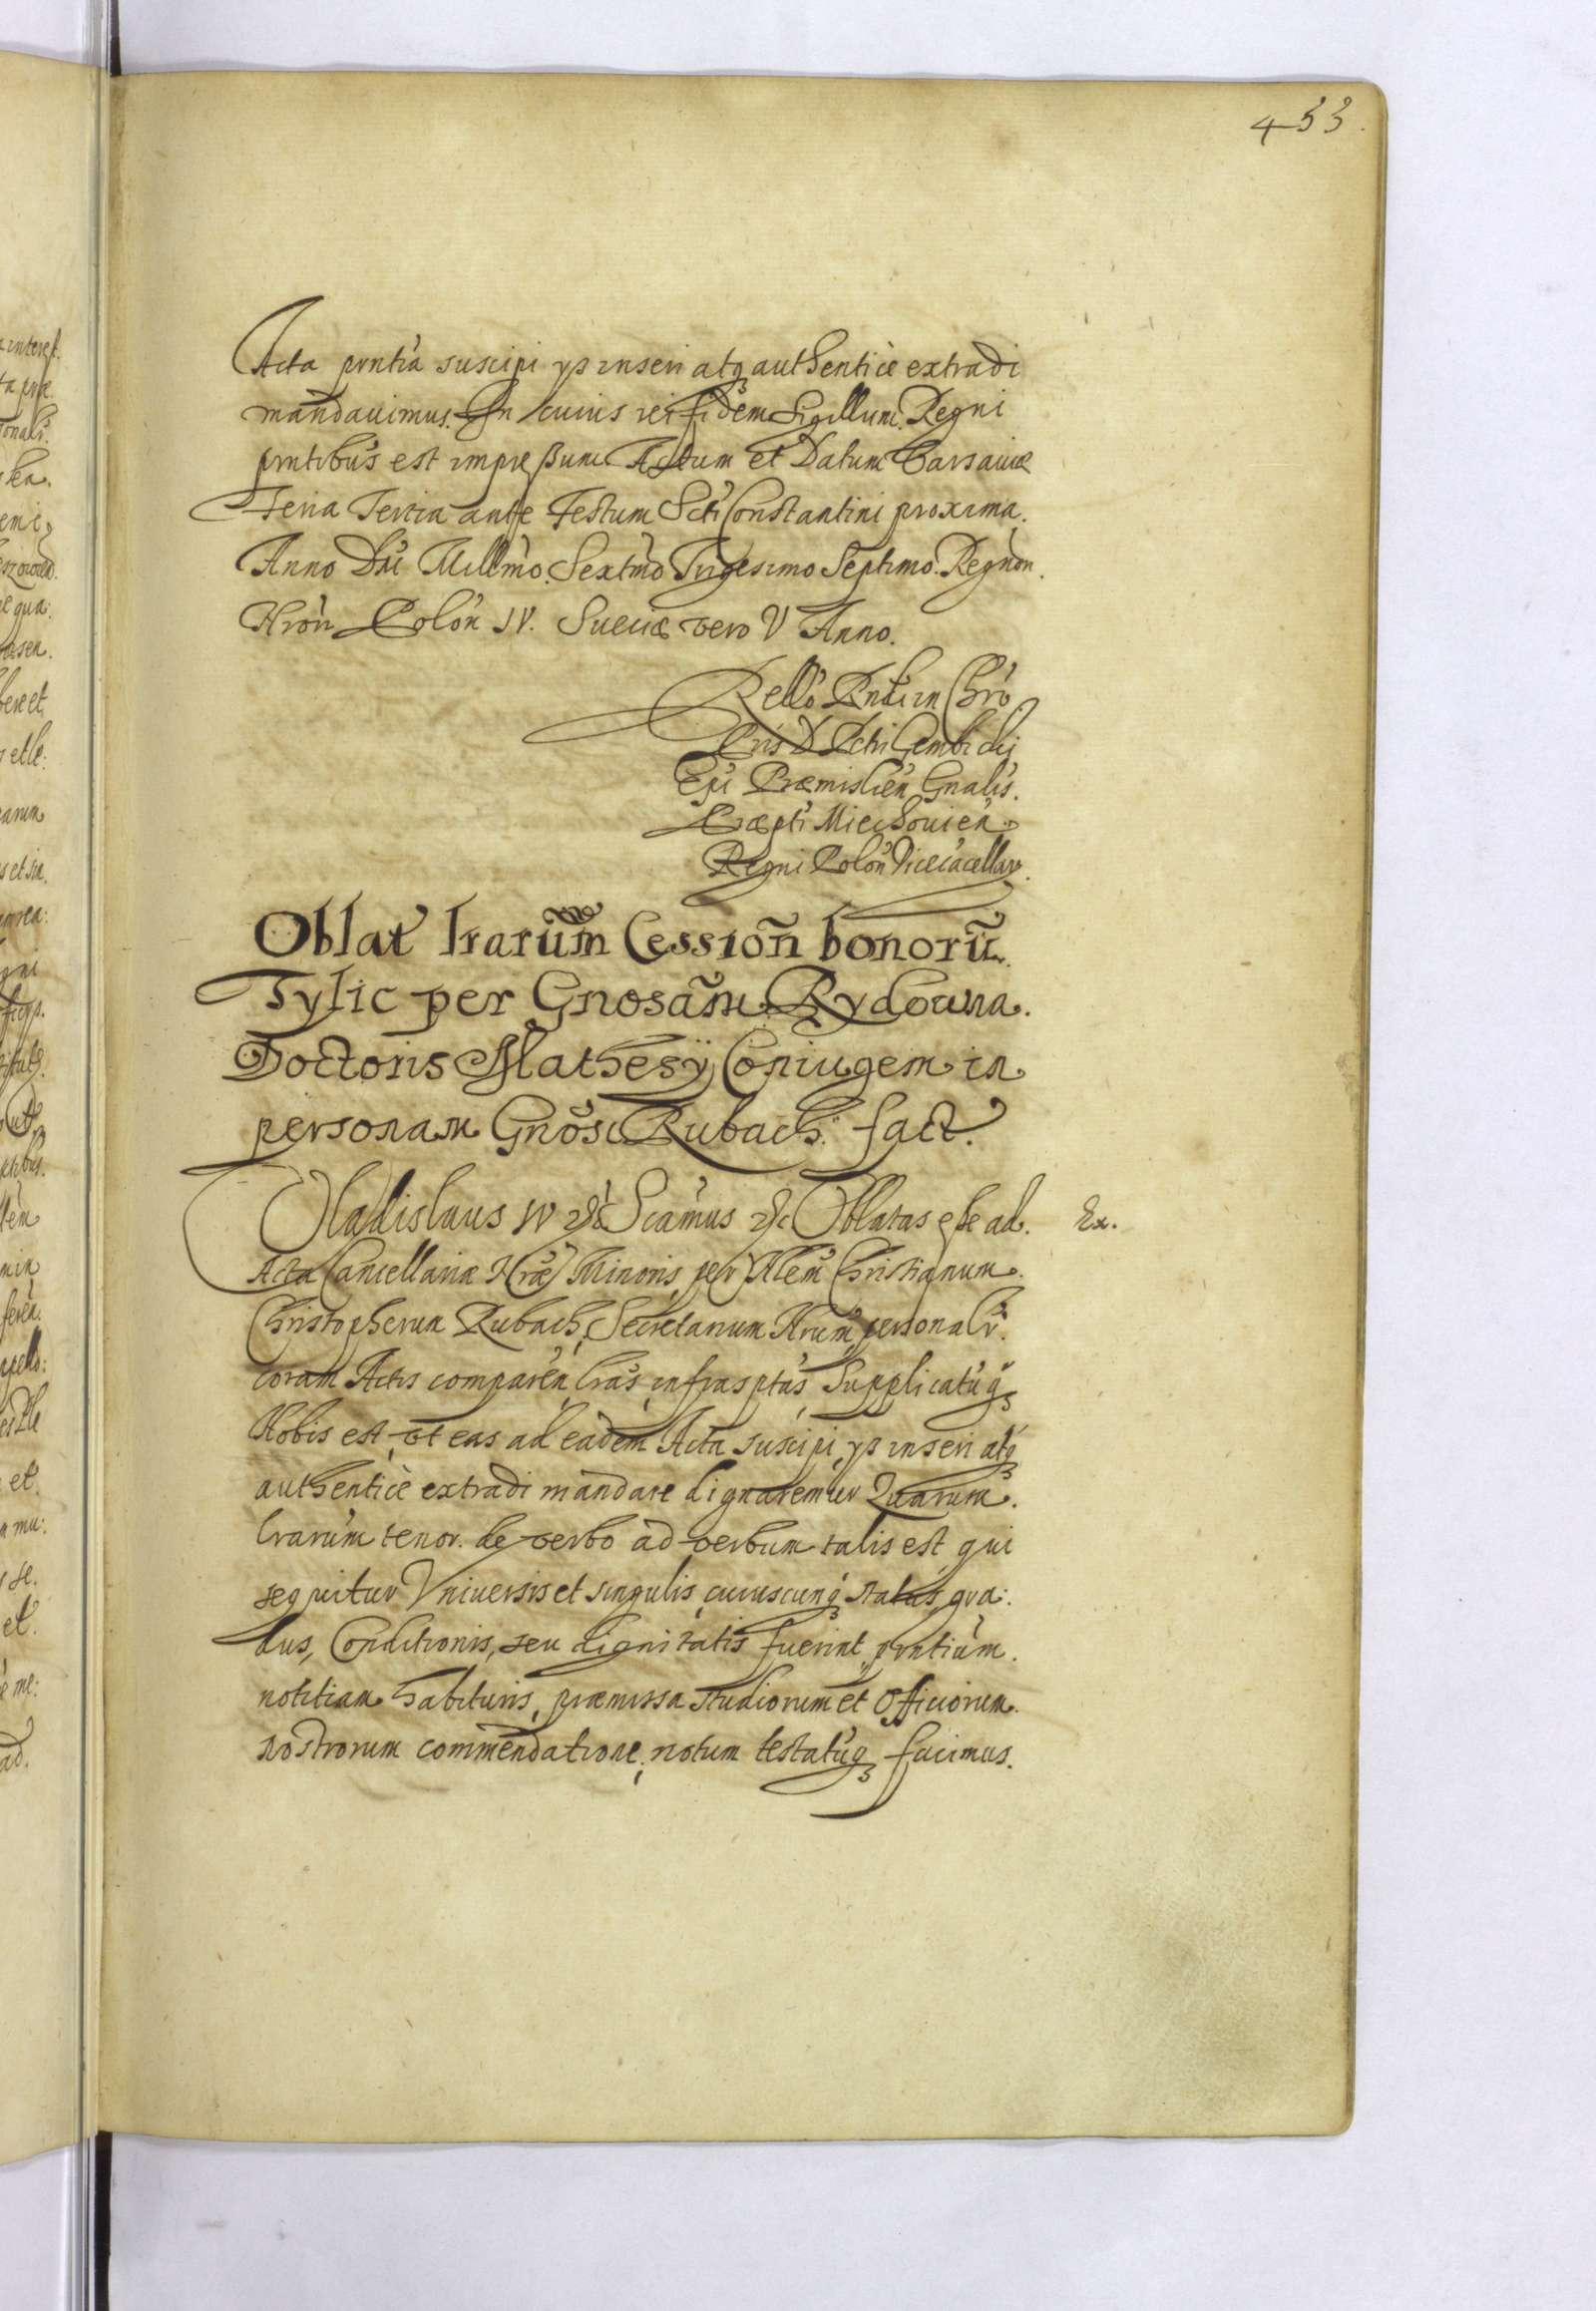 453.
Acta pnntia suscipi ys inseri atq authenticè extradi
mandauimus. In cuius rei fidem Sigillum Regni
pntibus est impreßum. Actum et Datum Varsauiæ
Feria Tertia ante Festum Scti Constantini proxima.
Anno Dni Millmo. Sextmo Trigesimo Septimo. Regnòn.
Nròn Polòn IV. Sueciæ vero V Anno.
Rello Pndi in Chro
Pris D Petri Gembicky
Epi Præmislièn Gnalis.
Præpti Miechouièn
Regni Polòn Vicecacellar.
Oblat lrarum Cession bonorũ
Tylic per Gnosam Rydowna.
Doctoris Mathesÿ Coniugem in
personam Gnosi Rubach: fact.
Vladislaus IV &c Scamus &c Oblatas eße ad. Ex.
Acta Cancellariæ Nræ Minoris, per Nlem Christianum.
Christopherum Rubach, Secretarium Nrum, personalr.
coram Actis comparèn, lras infrasptas, Supplicatuq
Nobis est, vt eas ad eadem Acta suscipi, ys inseri atq
authenticè extradi mandare dignaremur Quarum.
lrarum tenor. de verbo ad verbum talis est, qui
sequitur Vniuersis et singulis, cuiuscunq status, gra:
dus, Conditionis, seu dignitatis fuerint, pntium.
notitiam habituris, præmissa studiorum et officiorum.
nostrorum commendatione, notum testatuq facimus.